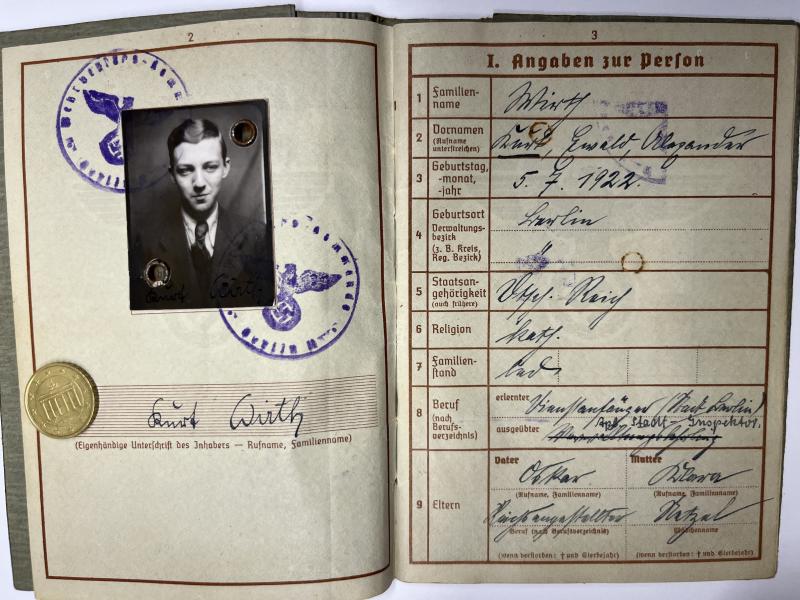 2
Kurt Wirth
Kurt Wirth
(Eigenhändige Unterschrift des Inhabers — Rufname, Familienname)
3
I. Angaben zur Person
1 Familien-
name
Wirth
2 Vornamen
(Rufname
unterstreichen)
Kurt, Ewald Alexander
3 Geburtstag,
-monat,
-jahr
5. 7. 1922.
4 Geburtsort
Verwaltungs-
bezirk
(z. B. Kreis,
Reg. Bezirk)
Berlin
"
5 Staatsan-
gehörigkeit
(auch frühere)
Dtsch. Reich
6 Religion
kath.
7 Familien-
stand
led.
8 Beruf
(nach
Berufs-
verzeichnis)
erlernter
Dienstanfänger (Stadt Berlin)
ausgeübter
Stadt-Inspektor.
9 Eltern
Vater
Oskar
(Rufname, Familienname)
Reichsangestellter
Beruf (nach Berufsverzeichnis)
(wenn verstorben: † und Sterbejahr)
Mutter
Klara
(Rufname, Familienname)
Mädchenname
(wenn verstorben: † und Sterbejahr)